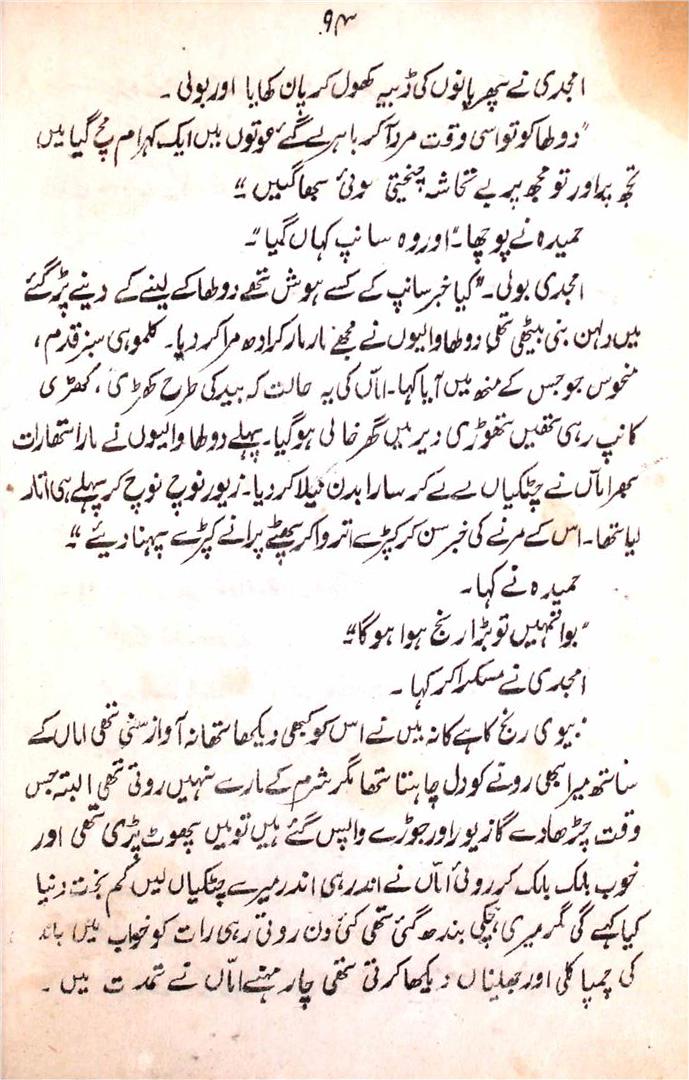 ۹۳
امجدی نے پھر پانوں کی ڈبیہ کھول کر پان کھایا اور بولی۔
"دولھا کو تو اسی وقت مرد آکر باہر لے گئے عورتوں میں ایک کہرام مچ گیا میں
تجھ پر اور تو مجھ پر بے تحاشہ چیختی ہوئی بھاگیں"
حمیدہ نے پوچھا۔ "اور وہ سانپ کہاں گیا"۔
امجدی بولی۔ "کیا خبر سانپ کے کسے ہوش تھے دولھا کے لینے کے دینے پڑ گئے
میں دلہن بنی بیٹھی تھی دولھا والیوں نے مجھے مار مار کر ادھ مرا کر دیا۔ کلموہی سبز قدم،
منحوس جو جس کے منھ میں آیا کہا۔ اماّں کی یہ حالت کہ بید کی طرح کھڑی، کھڑی
کانپ رہی تھیں تھوڑی دیر میں گھر خالی ہو گیا۔ پہلے دولھا والیوں نے مارا تھا رات
بھر اماّں نے چٹکیاں لے لے کر سارا بدن نیلا کر دیا۔ زیور نوچ نوچ کر پہلے ہی اتار
لیا تھا۔ اس کے مرنے کی خبر سن کر کپڑے اتروا کر پھٹے پرانے کپڑے پہنا دیئے"
حمیدہ نے کہا۔
"بوا تمہیں تو بڑا رنج ہوا ہوگا"۔
امجدی نے مسکرا کر کہا۔
"بیوی رنج کا ہے کا نہ میں نے اس کو کبھی دیکھا تھا نہ آواز سنی تھی اماں کے
ساتھ میرا بھی رونے کو دل چاہتا تھا مگر شرم کے مارے نہیں روتی تھی البتہ جس
وقت چڑھاوے کا زیور اور جوڑے واپس گئے ہیں تو میں پھوٹ پڑی تھی اور
خوب بلک بلک کر روئی اماّں نے اندر ہی اندر میرے چٹکیاں لیں کم بخت دنیا
کیا کہے گی مگر میری ہچکی بندھ گئی تھی کئی دن روتی رہی رات کو خواب میں
کی چمپا کلی اور دیکھا کرتی تھی چار مہینے اماّں نے عدت میں۔